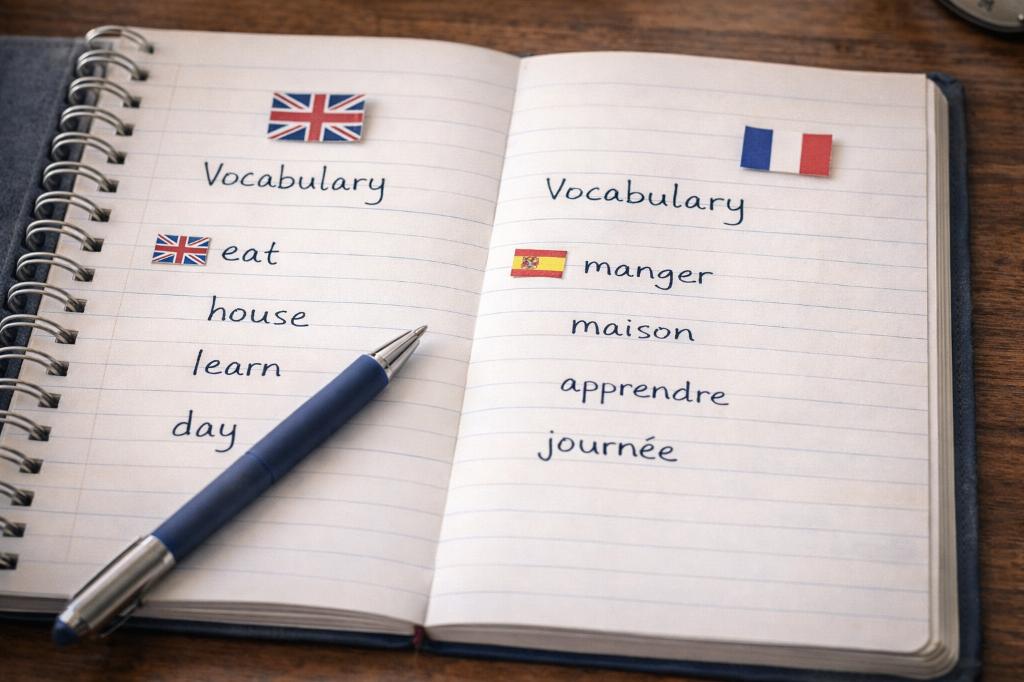 Vocabulary
eat
house
learn
day
Vocabulary
manger
maison
apprendre
journée